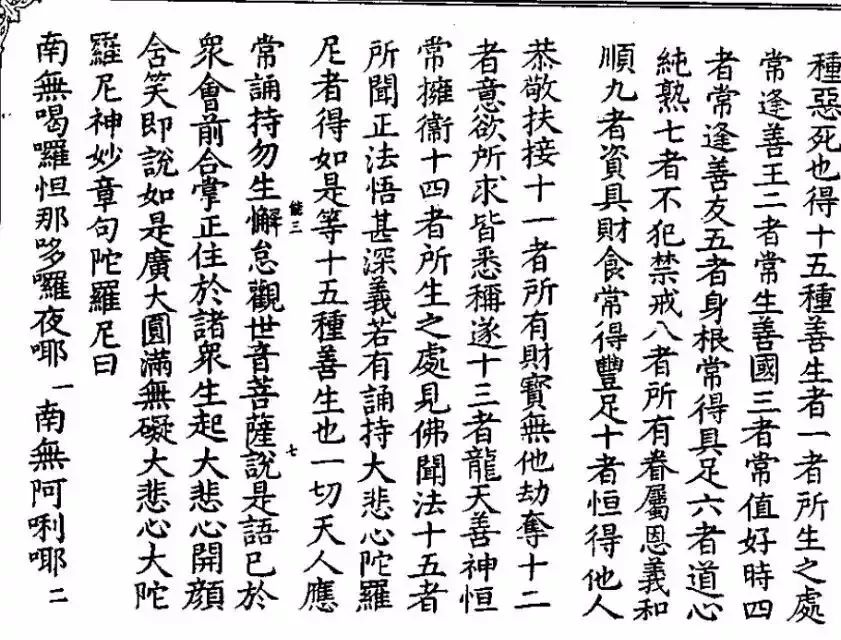 種惡死也得十五種善生者一者所生之處
常逢善王二者常生善國三者常值好時四
者常逢善友五者身根常得具足六者道心
純熟七者不犯禁戒八者所有眷屬恩義和
順九者資具財食常得豐足十者恒得他人
恭敬扶接十一者所有財寶無他劫奪十二
者意欲所求皆悉稱遂十三者龍天善神恒
常擁衞十四者所生之處見佛聞法十五者
所聞正法悟甚深義若有誦持大悲心陀羅
尼者得如是等十五種善生也一切天人應
能三
七
常誦持勿生懈怠觀世音菩薩說是語已於
衆會前合掌正住於諸衆生起大悲心開顏
含笑即說如是廣大圓滿無礙大悲心大陀
羅尼神妙章句陀羅尼曰
南無喝囉怛那哆囉夜㖿一南無阿唎㖿二